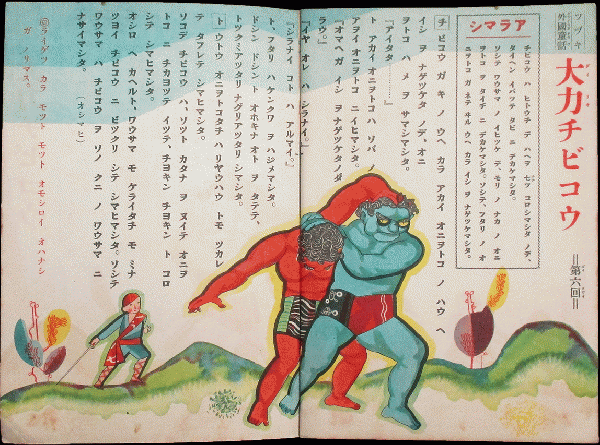 ツヅキ
外國童話
大力チビコウ
＝第六回＝
アラマシ
チビコウ ハ ヒトウチ デ ハヘヲ 七ツ コロシマシタ ノデ、
タイヘン イバッテ タビ ニ デカケマシタ。
ソシテ ワウサマ ノ イヒツケ デ、モリ ノ ナカ ノ オニ
ヲトコ ヲ タイヂ ニ デカケマシタ。ソシテ、フタリ ノ オ
ニヲトコ ガ ネテ ヰル ウヘ カラ イシ ヲ ナゲツケマシタ。
チビコウ ガ キ ノ ウヘ カラ アカイ オニヲトコ ノ ハウ ヘ
イシ ヲ ナゲツケタ ノデ、オニ
ヲトコ ハ メ ヲ サマシマシタ。
『アイタタ………』
ト アカイ オニヲトコ ハ ソバ ノ
アヲイ オニヲトコ ニ イヒマシタ。
『オマヘ ガ イシ ヲ ナゲツケタノダ
ラウ。』
『イヤ オレ ハ シラナイ。』
『シラナイ コト ハ アルマイ。』
ト、フタリ ハ ケンクワ ヲ ハジメマシタ。
ドシン ドシン ト オホキナ オト ヲ タテテ、
トックミアッタリ ナグリアッタリ シマシタ。
トウトウ オニヲトコタチ ハ リヤウハウ トモ ツカレ
テ タフレテ シマヒマシタ。
ソコデ チビコウ ハ、ソット カタナ ヲ ヌイテ オニヲ
トコ ニ チカヨッテ イッテ、チヨキン チヨキン ト コロ
シテ シマヒマシタ。
オシロ ヘ カヘルト、ワウサマ モ ケライタチ モ ミナ
ツヨイ チビコウ ニ ビックリ シテ シマヒマシタ。ソシテ
ワウサマ ハ チビコウ ヲ ソノ クニ ノ ワウサマ ニ
ナサイマシタ。
（オシマヒ）
◎ライゲツ カラ モット モット オモシロイ オハナシ
ガ ハジマリマス。